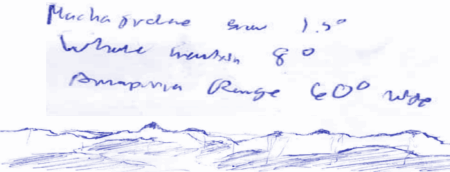 Machapuchare 1.5°
Whole mountain 8°
Annapurna Range 60° wide